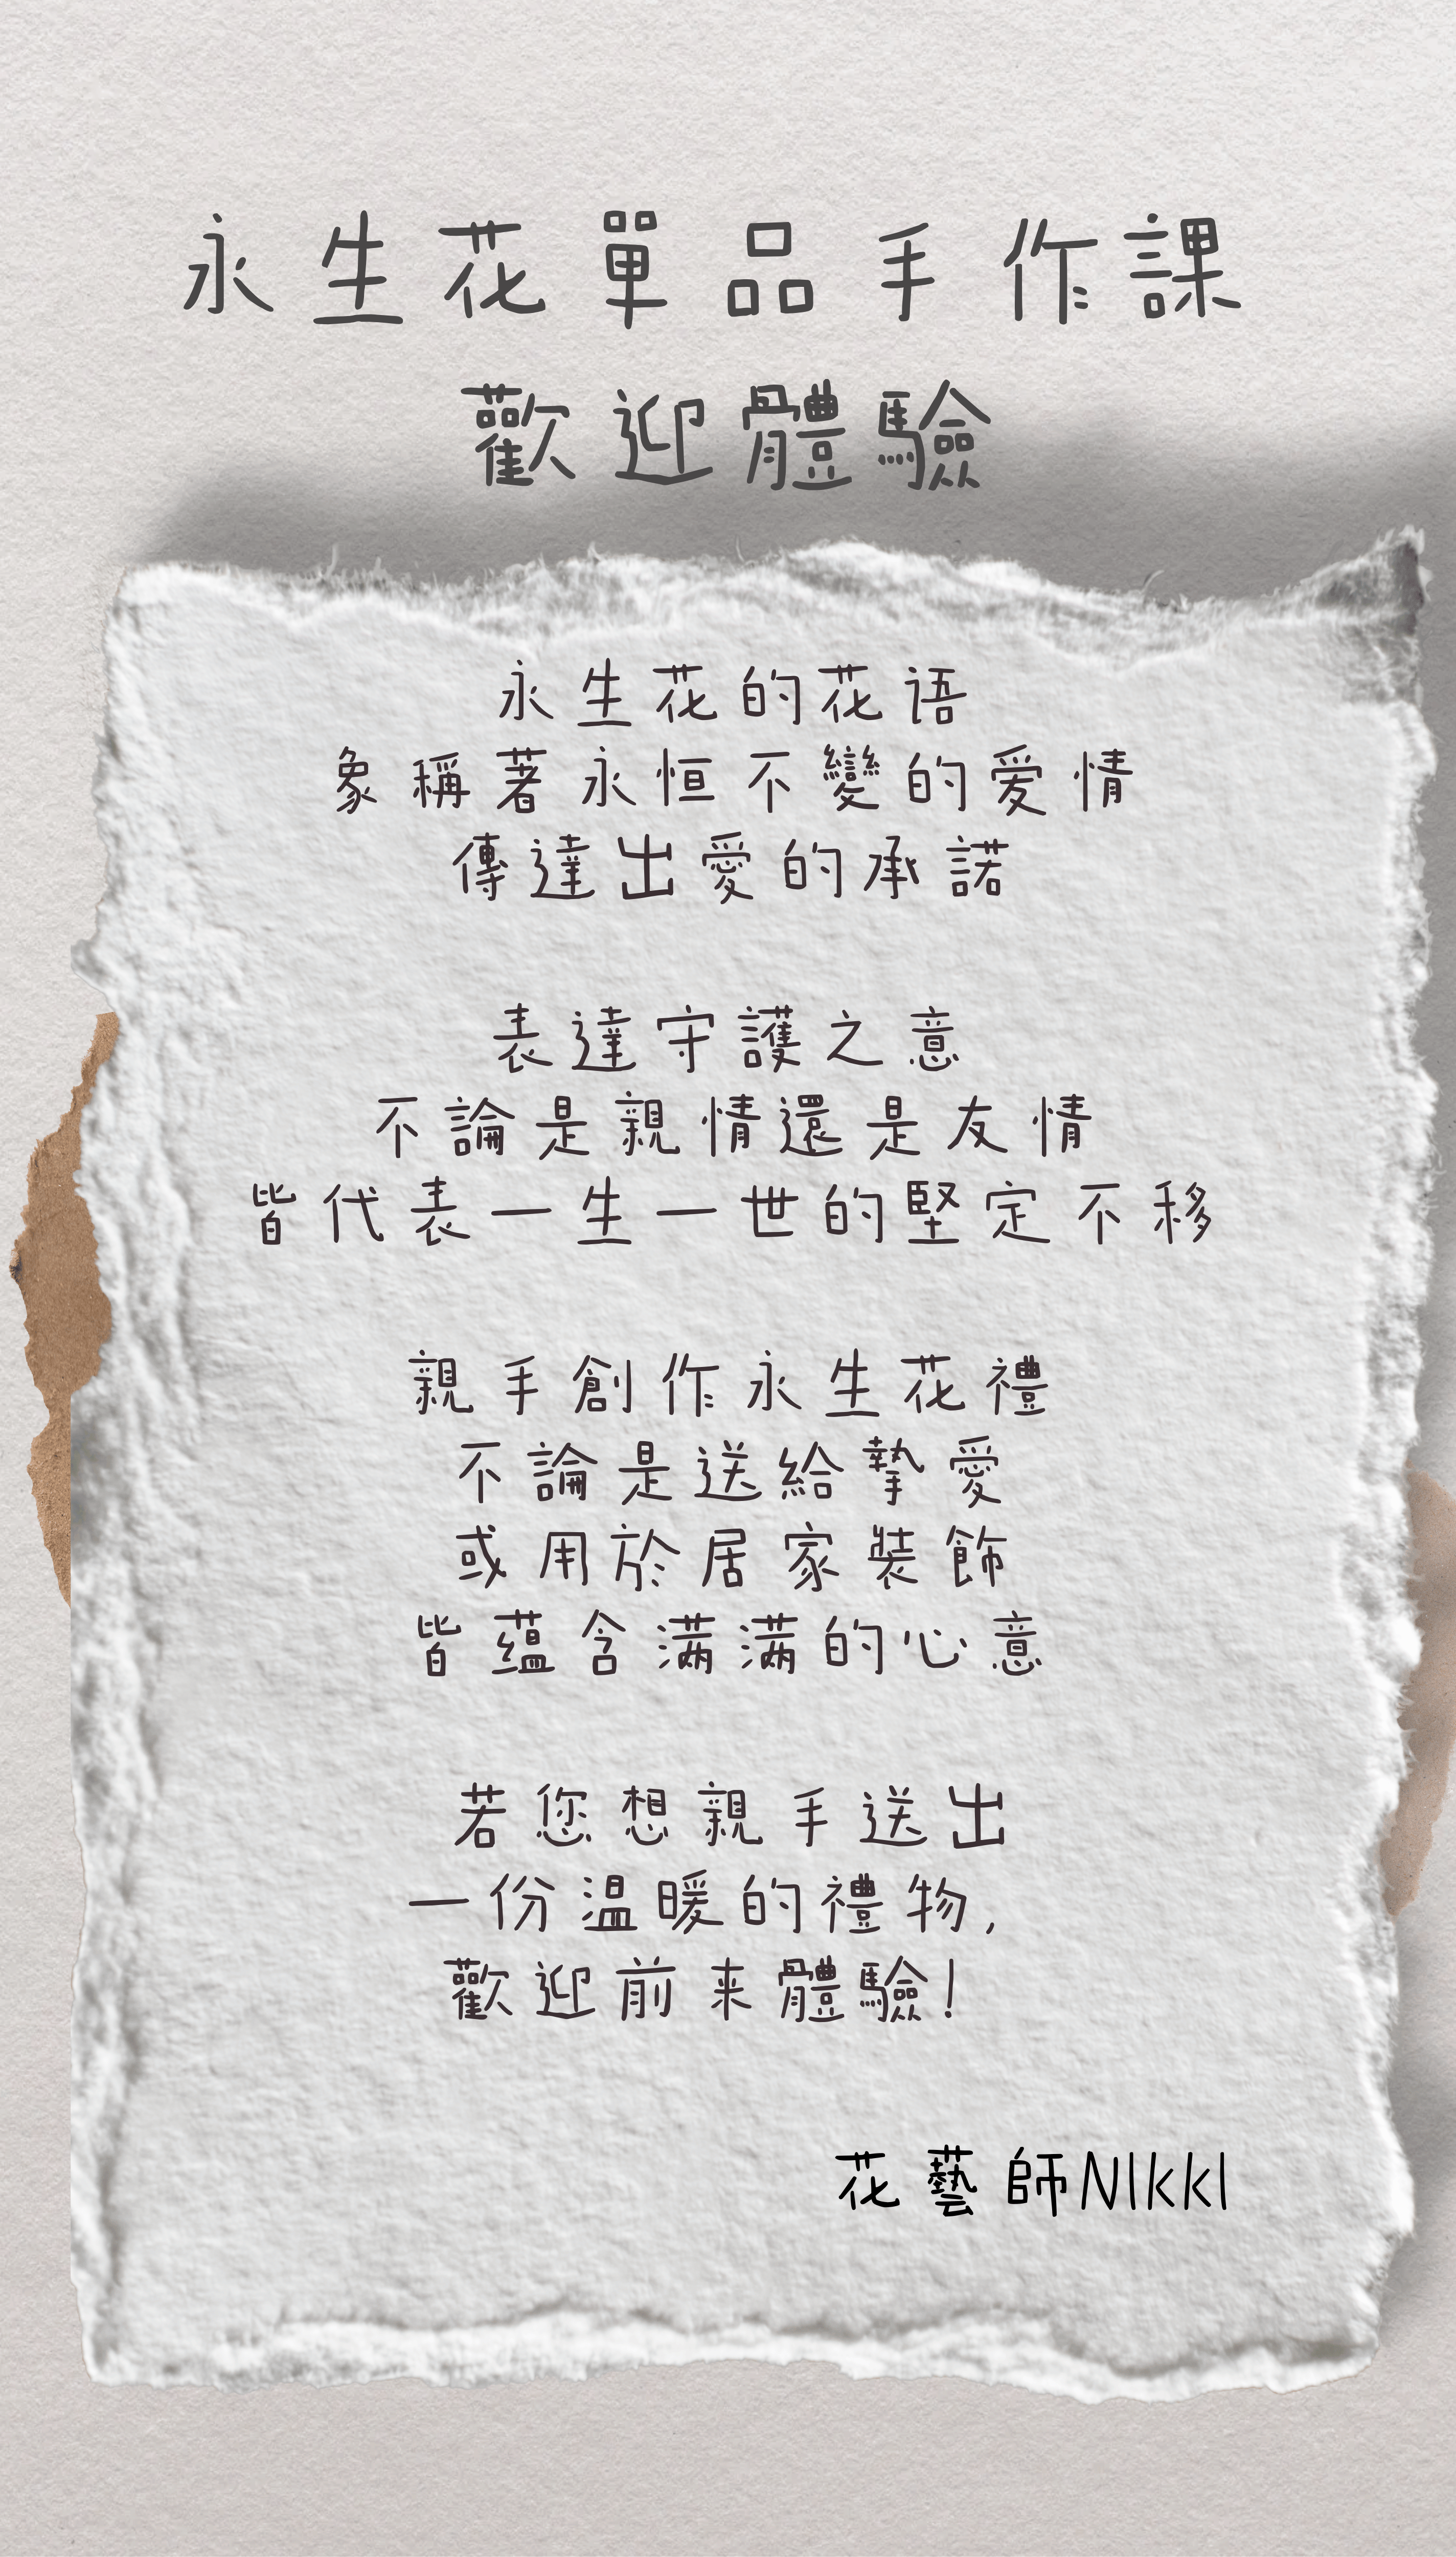 永生花單品手作課
歡迎體驗
永生花的花语
象稱著永恒不變的爱情
傳達出愛的承諾
表達守護之意
不論是親情還是友情
皆代表一生一世的堅定不移
親手創作永生花禮
不論是送給摯愛
或用於居家裝飾
皆蕴含满满的心意
若您想親手送出
一份温暖的禮物,
歡迎前来體驗!
花藝師NIkkI